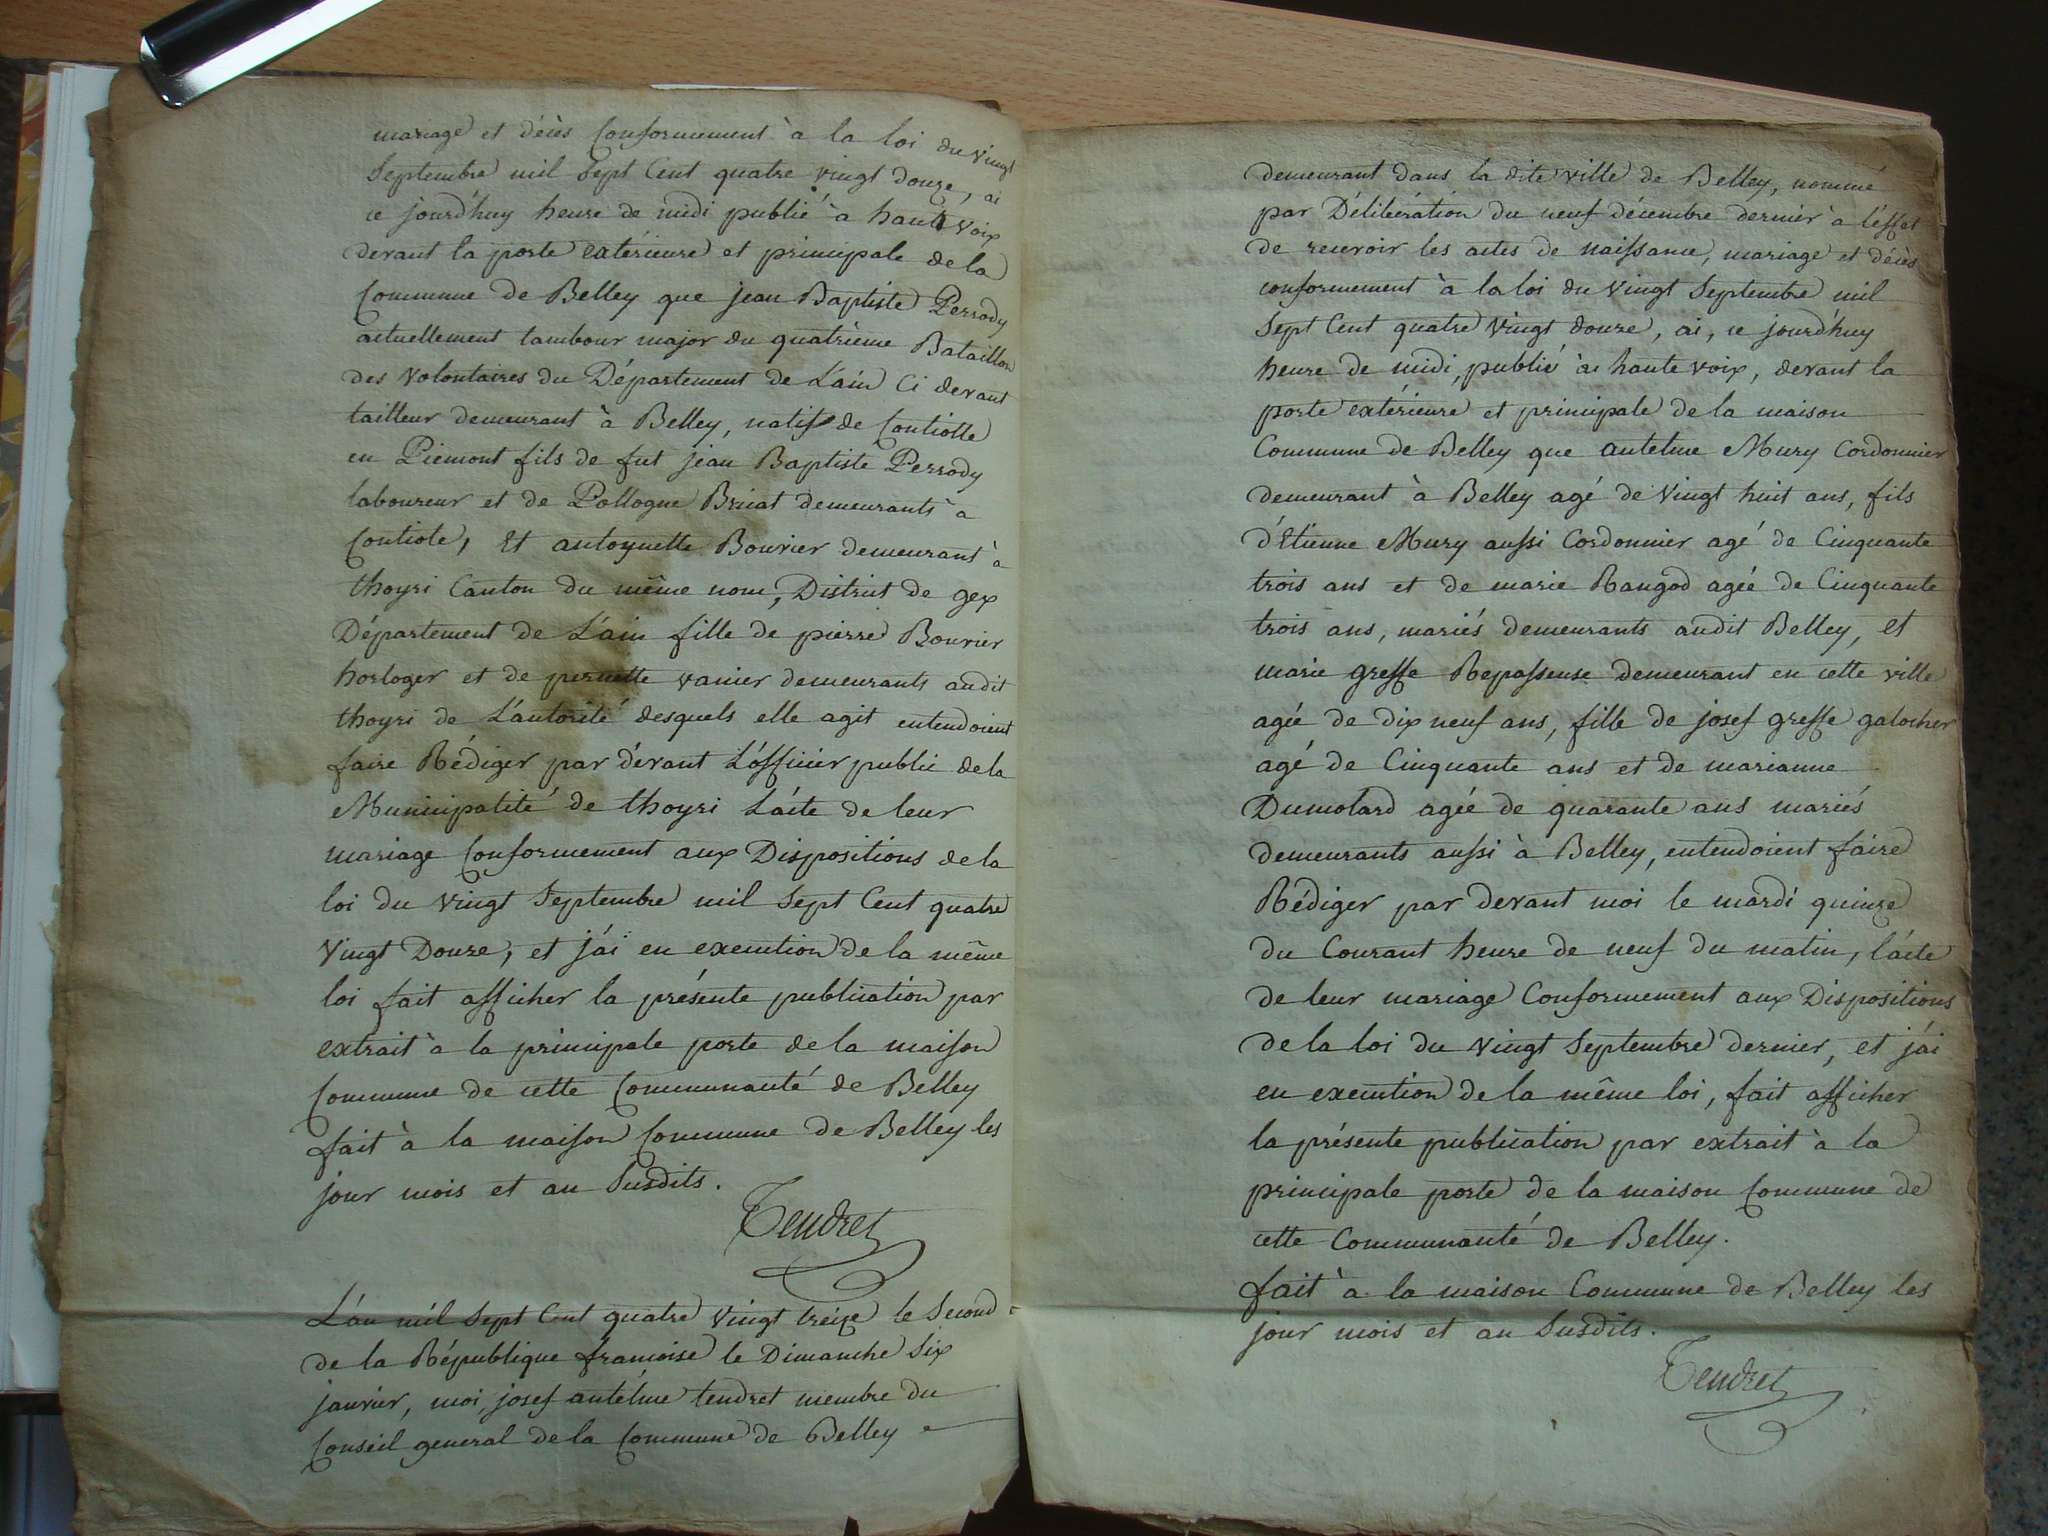 mariage et décès Conformement à la loi du vingt
Septembre mil Sept Cent quatre vingt douze, ai
ce jourd'huy heure de midi publié à haute voix
devant la porte extérieure et principale de la
Commune de Belley que jean Baptiste Perrody
actuellement tambour major du quatrième Bataillon
des Volontaires du Département de L'ain Ci devant
tailleur demeurant à Belley, natif de Contiolle
en Piemont fils de fut jean Baptiste Perrody
laboureur et de Pollogne Briat demeurants à
Contiole, Et antoynette Bouvier demeurant à
thoyri Canton du même nom, District de gex
Département de L'ain fille de pierre Bouvier
horloger et de pernette vanier demeurants audit
thoyri de L'autorité desquels elle agit entendoient
faire Rédiger par dévant L'officier public de la
Municipalité de thoyri L'acte de leur
mariage Conformement aux Dispositions de la
loi du vingt Septembre mil Sept Cent quatre
Vingt Douze, et j'ai en execution de la même
loi fait afficher la présente publication par
extrait à la principale porte de la maison
Commune de cette Communauté de Belley
fait à la maison Commune de Belley les
jour mois et an Susdits.
Tendret
L'an mil Sept Cent quatre Vingt treize le Second
de la République francoise le Dimanche Six
janvier, moi, josef antelme tendret membre du
Conseil general de la Commune de Belley
demeurant dans la dite ville de Belley, nommé
par Délibération du neuf décembre dernier à l'effet
de recevoir les actes de naissance, mariage et décès
conformement à la loi du Vingt Septembre mil
Sept Cent quatre Vingt douze, ai, ce jourd'huy
heure de midi, publié à haute voix, devant la
porte extérieure et principale de la maison
Commune de Belley que antelme Mury Cordonnier
demeurant à Belley agé de Vingt huit ans, fils
d'Etienne Mury aussi Cordonnier agé de Cinquante
trois ans et de marie Rangod agée de Cinquante
trois ans, mariés demeurants audit Belley, et
marie greffe Repasseuse demeurant en cette ville
agée de dix neuf ans, fille de josef greffe galocher
agé de Cinquante ans et de marianne
Dumolard agée de quarante ans mariés
demeurants aussi à Belley, entendoient faire
Rédiger par devant moi le mardi quinze
du Courant heure de neuf du matin, l'acte
de leur mariage Conformement aux Dispositions
de la loi du vingt Septembre dernier, et j'ai
en execution de la même loi, fait afficher
la présente publication par extrait à la
principale porte de la maison Commune de
cette Communauté de Belley.
fait à la maison Commune de Belley les
jour mois et an Susdits.
Tendret